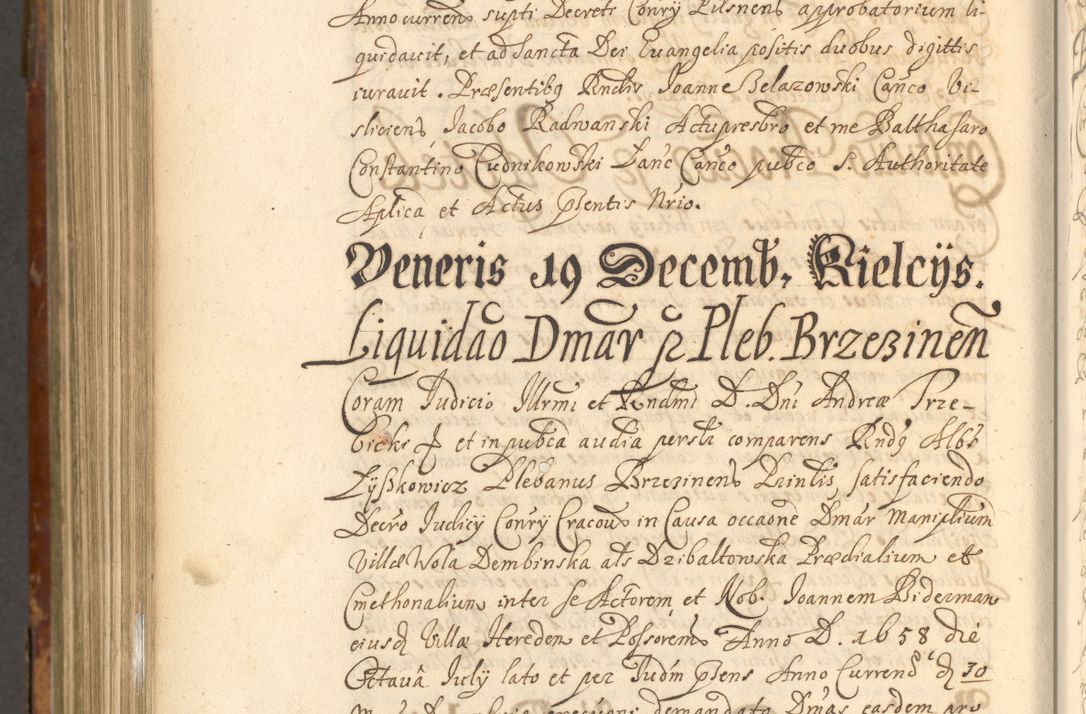 Anno curren supti Decreti Conry Pilsnens approbatorium li-
quidavit, et ad Sancta Dei Evangelia positis duobus digittis
iuravit. Præsentibq Rndis Joanne Belazowski Canco Vi-
sliciens Jacobo Radwanski Actupresbro et me Balthasaro
Constantino Cudnikowski Canco pubco S. Authoritate
Aplica et Actus pśentis Nrio.
Veneris 19 Decemb. Kielcijs.
Liquidāo Dmār p Pleb. Brzezineñ
Coram Judicio Illrmi et Rndmi D. Dni Andreæ Trze-
bicki et in pubca audia persłr comparens Rndq Albt
Zyszkowicz Plebanus Brzezinens satisfaciendo
Decro Judicij Conrij Cracov in Causa occaone Dmar Maniplium
Villæ Wola Dembinska als Dzibaltowska Prædialium et
Cmethonalium inter se Actorem et Nob. Joannem Biderman
eiusq Villæ Hereden et Possorem Anno D. 1658 die
Octava July lato et per Judm pśens Anno Currend 30
executioni demandato Dmas easdem pro